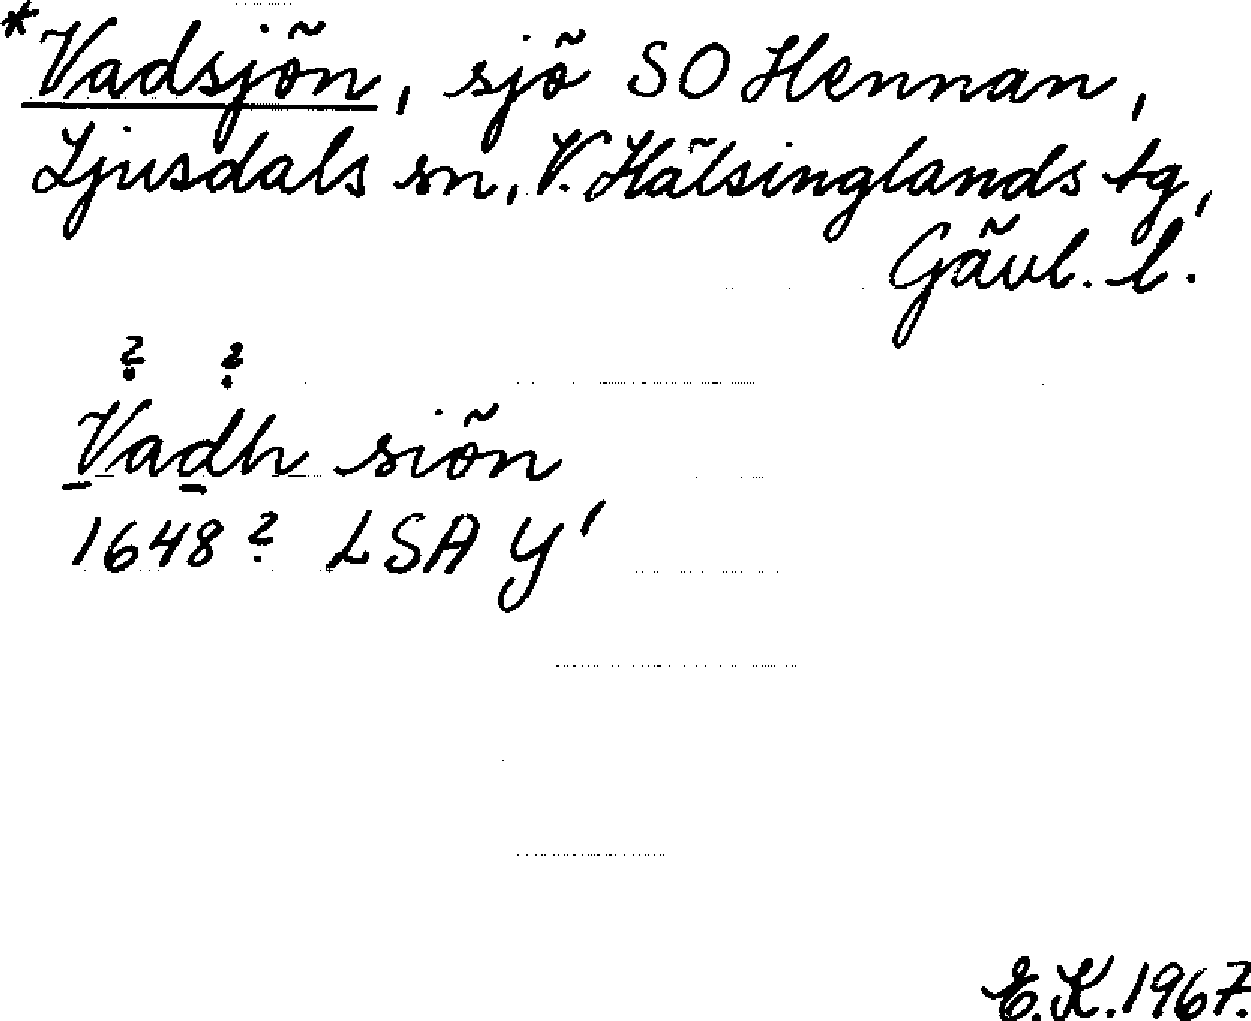 *Vadsjön, sjö SO Hennan,
Ljusdals sn, V. Hälsinglands tg,
Gävl. l.
? ?
Vadh siön
1648? LSA Y'
E.K. 1967.